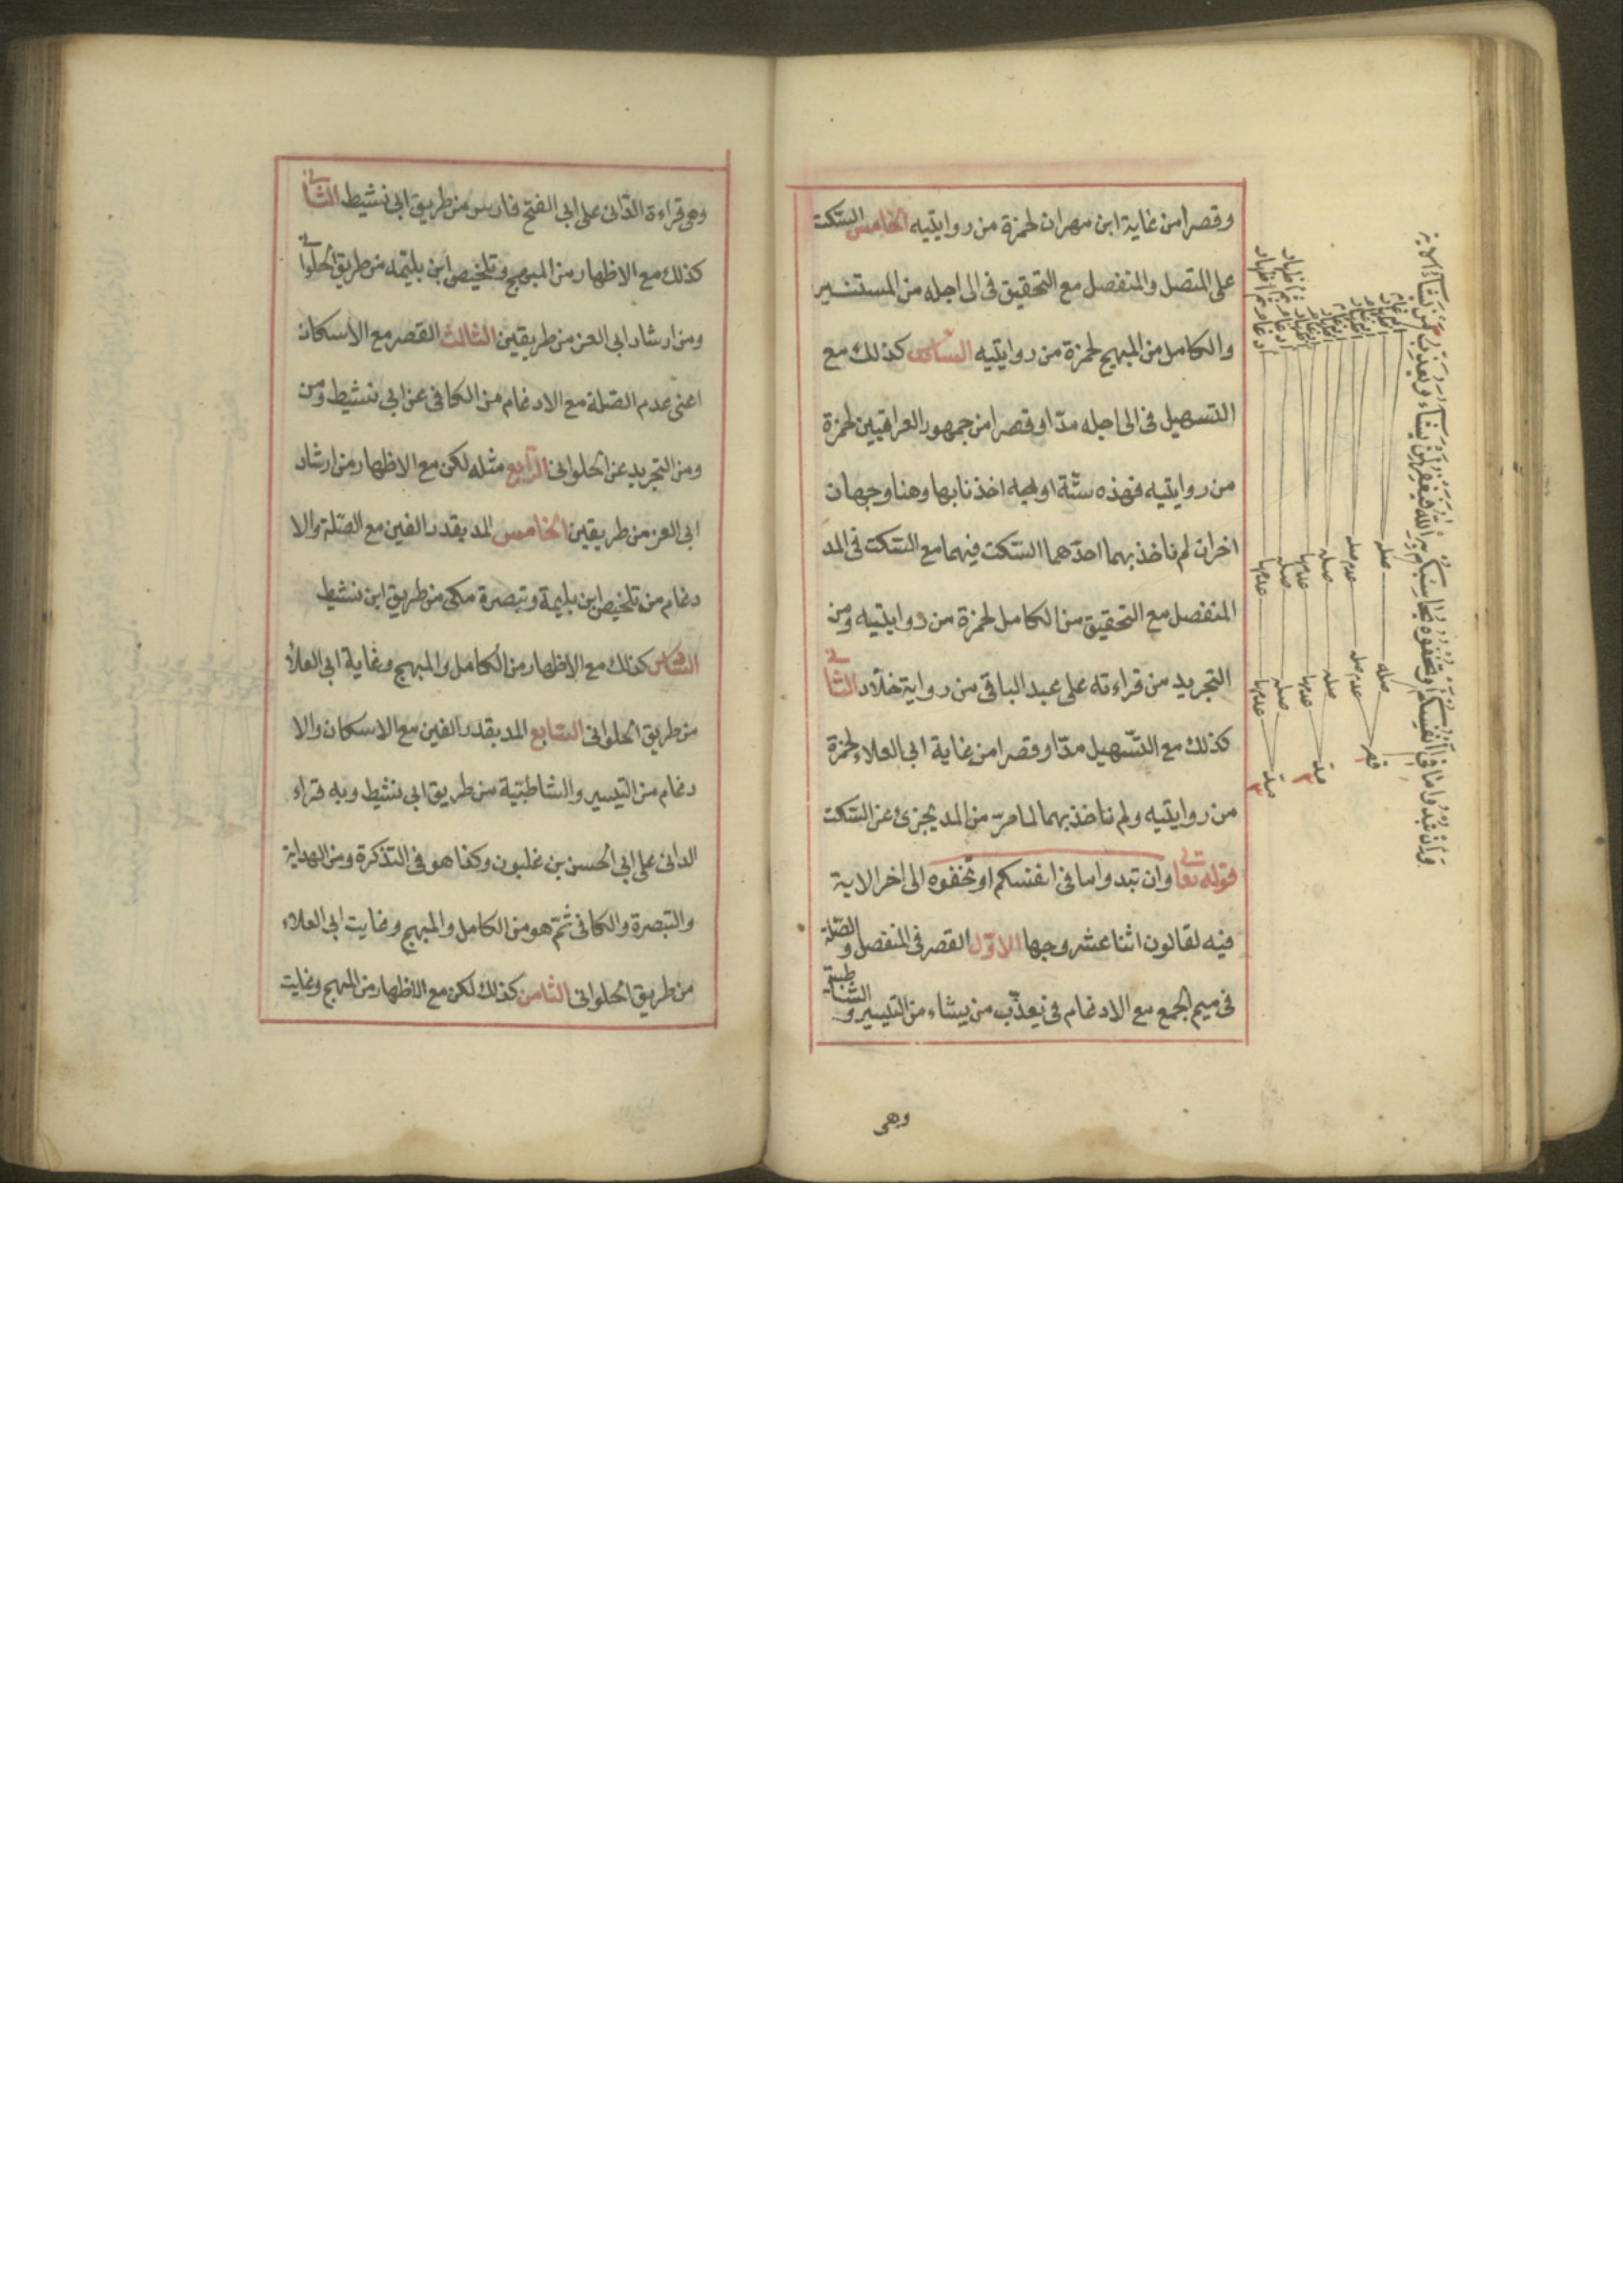 وقصرا من غاية ابن مهران لحمزة من روايتيه الخامس السكت
على المتصل والمنفصل مع التحقيق فى الى اجله من المستنير
والكامل من المبهج لحمزة من روايتيه السادس كذلك مع
التسهيل فى الى اجله مدّا وقصرا من جمهور العراقيين لحمزة
من روايتيه فهذه ستّة اوجه اخذنا بها وهنا وجهان
اخران لم ناخذ بهما احدهما السّكت فيهما مع السّكت فى المد
المنفصل مع التحقيق من الكامل لحمزة من روايتيه ومن
التجريد من قراءته على عبد الباقى من رواية خلّاد الثانى
كذلك مع التّسهيل مدّا وقصرا من غاية ابى العلاء لحمزة
من روايتيه ولم ناخذ بهما لما مرّ من المد يجزئ عن السّكت
قوله تعالى وان تبدوا ما فى انفسكم او تخفوه الى اخر الاية
فيه لقالون اثنا عشر وجها الاوّل القصر فى المنفصل والصّلة
فى ميم الجمع مع الادغام فى يعذّب من يشاء من التيسير والشّاطبيّة
وهى
وان تبدوا ما فى انفسكم او تخفوه يحاسبكم به الله فيغفر لمن يشاء ويعذب من يشاء الاية
قصر
صله
صله
ادغام
اظهار
عدم صله
عدم صله
ادغام
اظهار
مد
صله
صله
ادغام
اظهار
عدمها
عدمها
ادغام
اظهار
مد
صله
صله
ادغام ثم اظهار
عدمها
عدمها
ادغام ثم اظهار
وهى قراءة الدّانى على ابى الفتح فارس من طريق ابى نشيط الثانى
كذلك مع الاظهار من المبهج وتلخيص ابن بليمه من طريق الحلوانى
ومن ارشاد ابى العز من طريقين الثالث القصر مع الاسكان
اعنى عدم الصّلة مع الادغام من الكافى عن ابى نشيط ومن
ومن التجريد عن الحلوانى الرّابع مثله لكن مع الاظهار من ارشاد
ابى العز من طريقين الخامس المد بقدر الفين مع الصّلة والا
دغام من تلخيص ابن بليمة وتبصرة مكى من طريق ابن نشيط
السّادس كذلك مع الاظهار من الكامل والمبهج وغاية ابى العلاء
من طريق الحلوانى السّابع المد بقدر الفين مع الاسكان والا
دغام من التيسير والشاطبّية من طريق ابى نشيط وبه قراء
الدانى على ابى الحسن بن غلبون وكفا هو فى التذكرة ومن الهداية
والتبصرة والكافى ثمّ هو من الكامل والمبهج وغايت ابى العلاء
من طريق الحلوانى الثامن كذلك لكن مع الاظهار من المبهج وغايت